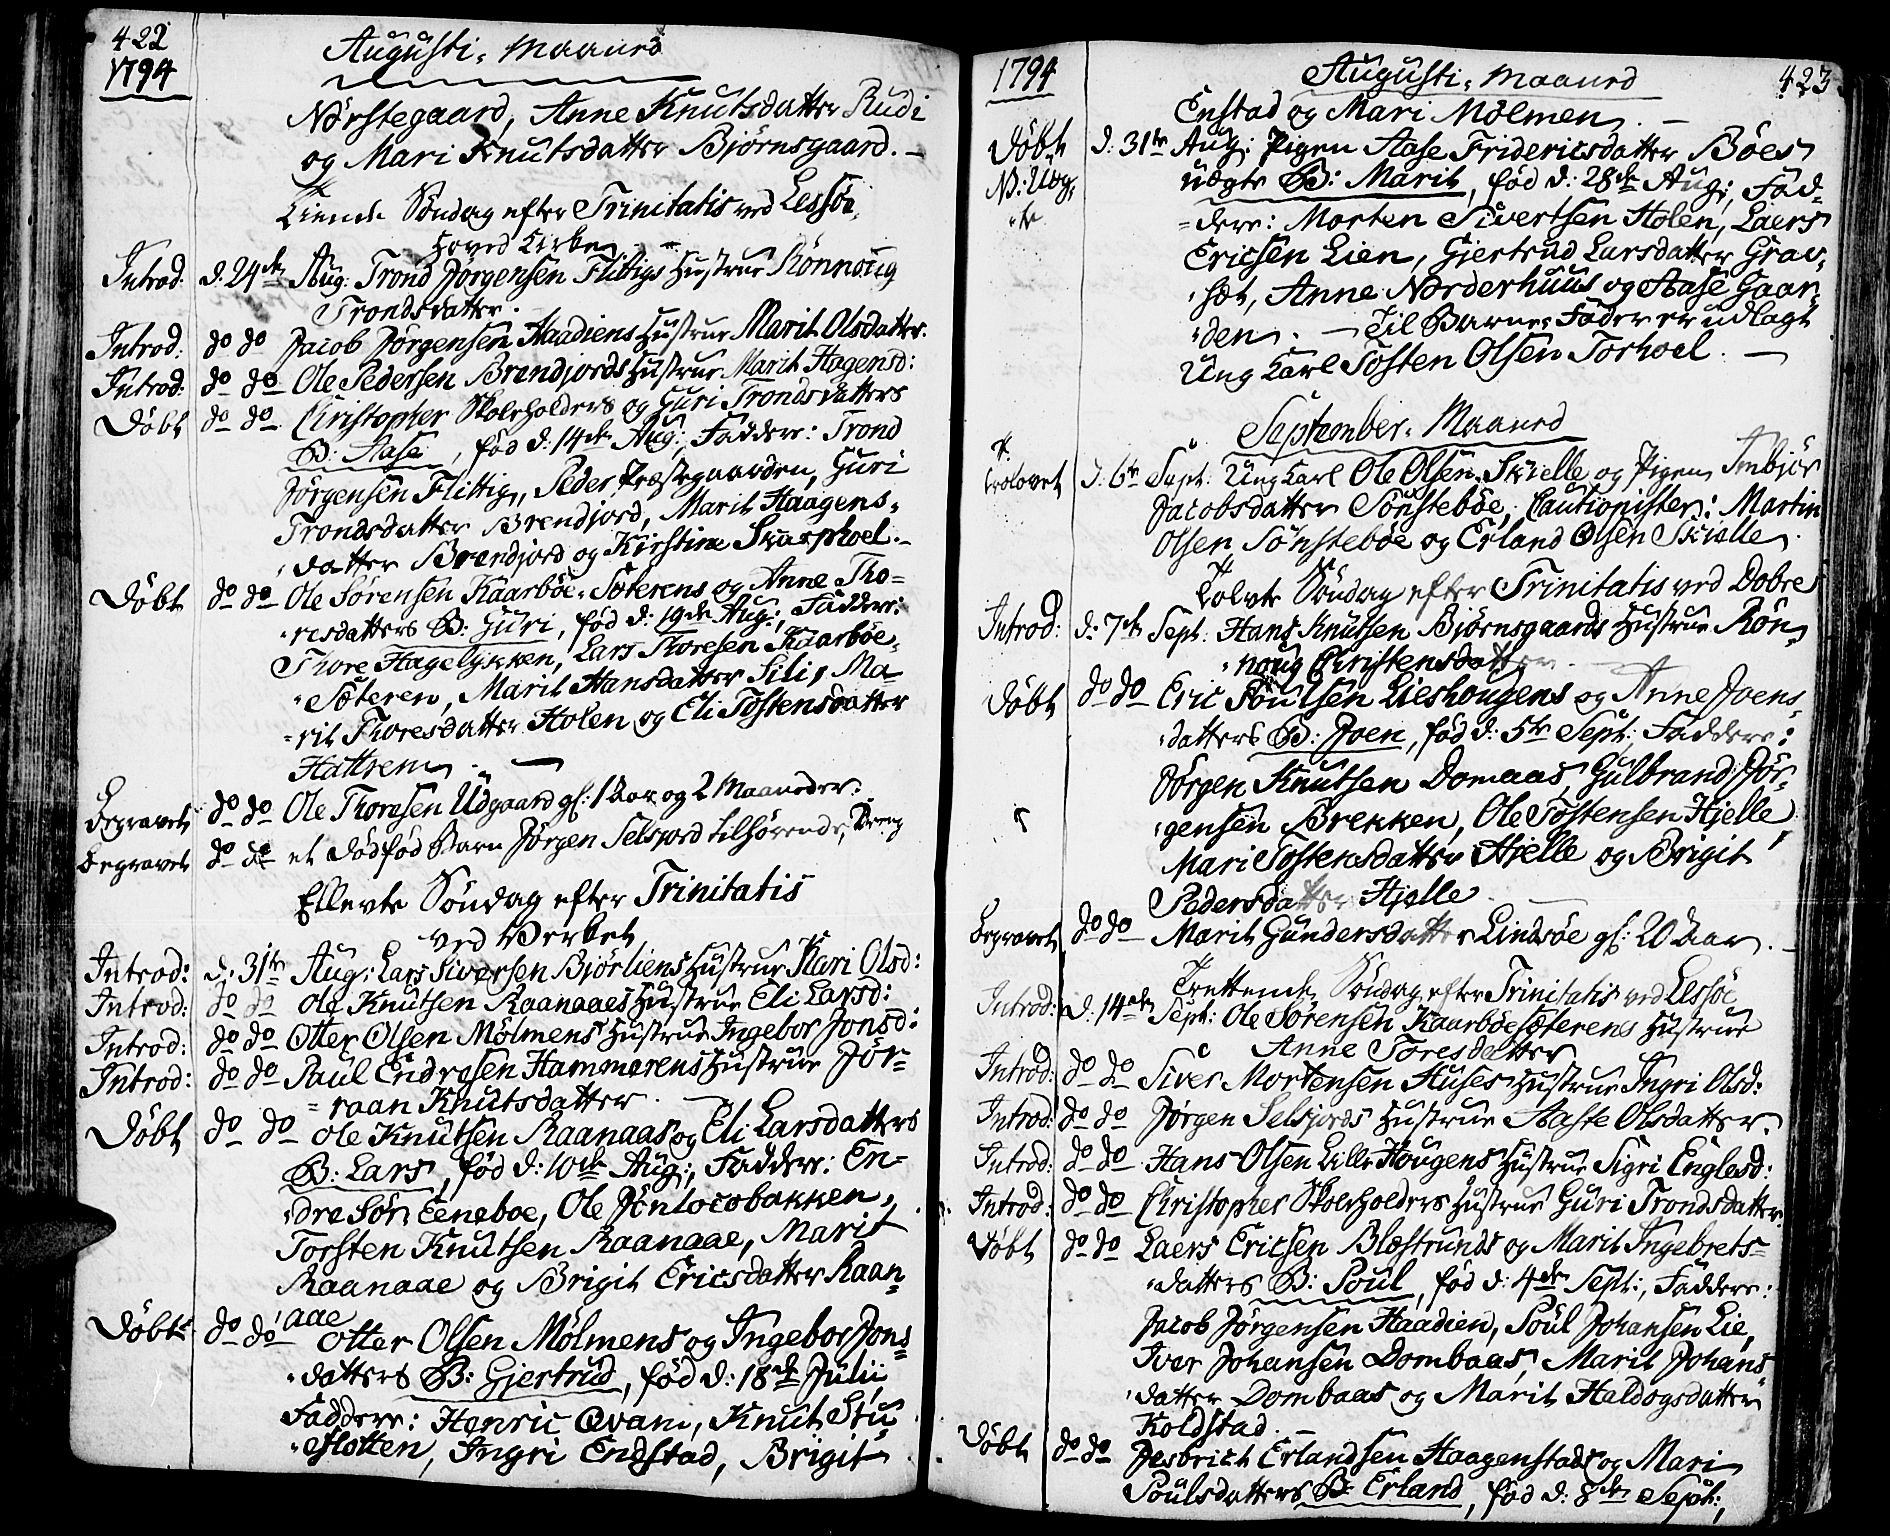 422
1794
Augusti, Maaned
Nørstegaard, Anne Knutsdatter Rudi
og Mari Knutsdatter Bjørnsgaard. -
Tiende Søndag efter Trinitatis ved Lessøe
Hoved Kirke
Introd: d: 24de Aug: Trond Jørgensen Flittigs Hustrue Rønnoug
Trondsdatter.
Introd: do do Jacob Jørgensen Haadiens Hustrue Marit Olsdatter.
Introd: do do Ole Pedersen Brendjords Hustrue Marit Hagensd:
Døbt do do Christopher Skoleholders og Guri Trondsdatters
B: Aase, fød d: 14de Aug: Faddere: Trond
Jørgensen Flittig, Peder Præstegaarden, Guri
Trondsdatter Brendjord, Marit Haagens-
datter Brendjord og Kirstine Skarphoel.-
Døbt do do Ole Sørensen Kaarbøe-Sæterens og Anne Tho=
=resdatters B: Guri, fød d: 19de Aug:, Faddere:
Thore Hagelykken, Lars Thoresen Kaarbøe-
-Sæteren, Marit Hansdatter Lili, Ma-
=rit Thoresdatter Holen og Eli Tostensdatter
Hattrem. -
Begravet do do Ole Thoresen Udgaard gl: 1 Aar og 2 Maaneder.
Begravet do do et dødfød Barn Jørgen Selsjord tilhørende, Dreng
Ellevte Søndag efter Trinitatis
ved Verket
Introd: d: 31te Aug: Lars Siversen Bjørliens Hustrue Kari Olsd:
Introd: do do Ole Knutsen Raanaaes Hustrue Eli Larsd:
Introd: do do Otter Olsen Mølmens Hustrue Ingebor Jonsd:
Introd: do do Paul Endresen Hammerens Hustrue Jør-
=raan Knutsdatter.
Døbt do do Ole Knutsen Raanaas og Eli Larsdatters
B: Lars, fød d: 10de Aug:, Faddere: En-
dre Sør Eeneboe, Ole
Torsten Knutsen Raanaae, Marit
Raanaae og Brigit Ericsdatter Raan-
aae
Døbt do do Otter Olsen Mølmens og Ingebor Jons=
datters B: Gjertrud, fød d: 18de Julii
Faddere: Henric Qvam, Knut Stu
-flotten, Ingri Endstad, Brigit
1794
Augusti, Maaned
423
Enstad og Mari Mølmen. -
Døbt d: 31te Aug: Pigen Aase Fridericsdatter Bøes
N: Uæg:
te
uægte B: Marit, fød d: 28de Aug:, Fad-
=dere: Morten Sivertsen Holen, Laers
Ericsen Lien, Gjertrud Larsdatter Grav-
sæt, Anne Norderhuus og Aase Gaar-
den. - Til Barne Fader er udlagt
Ung Karl Tosten Olsen Torhoel. -
September, Maaned
Trolovet d: 6te Sept: Ung Karl Ole Olsen Skielle og Pigen Imbjør
Jacobsdatter Sønstebøe, Cautionister: Martin
Olsen Sønstebøe og Erland Olsen Skielle.
Tolvte Søndag efter Trinitatis ved Dobre
Introd: d: 7de Sept: Hans Knutsen Bjørnsgaards Hustrue Røn-
noug Christensdatter.
Døbt do do Eric Poulsen Lieshougens og Anne Joens-
datters B: Joen, fød d: 5te Sept: Faddere:
Jørgen Knutsen Domaas, Gulbrand Jør-
gensen Brekken, Ole Tostensen Hjelle
Mari Tostensdatter Hjelle og Brigit
Pedersdatter Hjelle.
Begravet do do Marit Gundersdatter Lindsøe gl: 20 Aar. -
Trettende Søndag efter Trinitatis ved Lessøe
Introd: d: 14de Sept: Ole Sørensen Kaarbøesæterens Hustrue
Anne Toresdatter
Introd: do do Siver Mortensen Huses Hustrue Ingri Olsd:
Introd: do do Jørgen Selsjords Hustrue Aaste Olsdatter.
Introd: do do Hans Olsen Lille Hougens Hustrue Sigri Englesd:
Introd: do do Christopher Skoleholders Hustrue Guri Trondsdatter.
Døbt do do Laers Ericsen Blæstrunds og Marit Ingebrets=
datters B: Poul, fød d: 4de Sept:, Faddere:
Jacob Jørgensen Haadien, Poul Johansen Lie,
Iver Johansen Dombaas, Marit Johans
datter Dombaas og Marit Haldogsdatter
Koldstad. -
Døbt do do Jesbrich Erlandsen Haagenstads og Mari
Poulsdatters B: Erland, fød d: 8de Sept:,